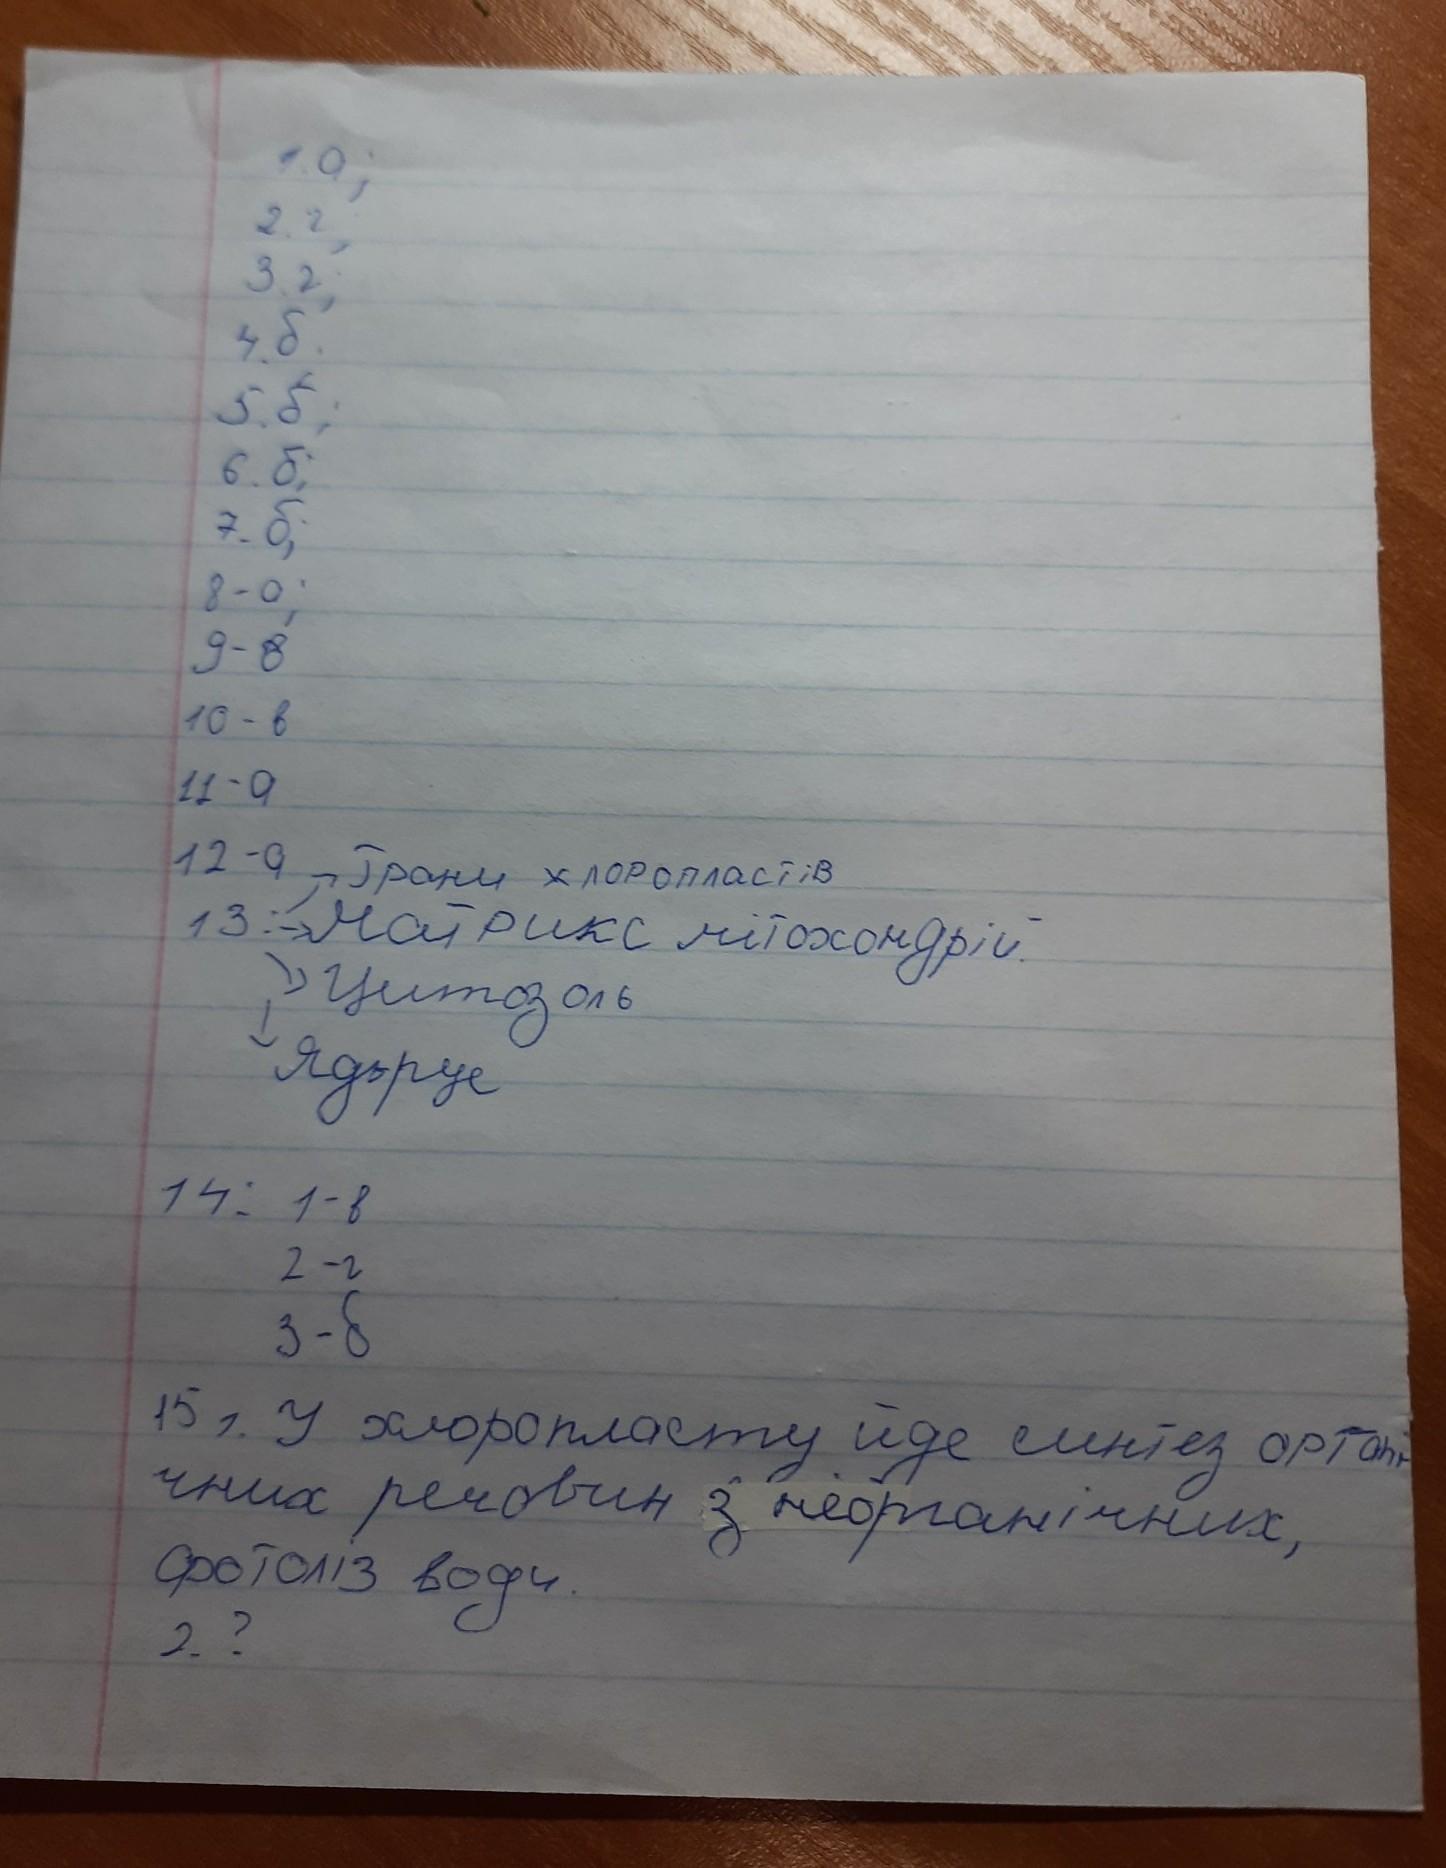 1. а;
2. г;
3. г;
4. б.
5. б;
6. б;
7. б;
8-а;
9-в
10-в
11-а
12-а
Грани хлоропластів
13: Матрикс мітохондрій.
Цитозоль
Ядърце
14: 1-в
2-г
3-б
15 1. У хлоропласту йде синтез органі
чних речовин з неорганічних,
фотоліз води.
2. ?